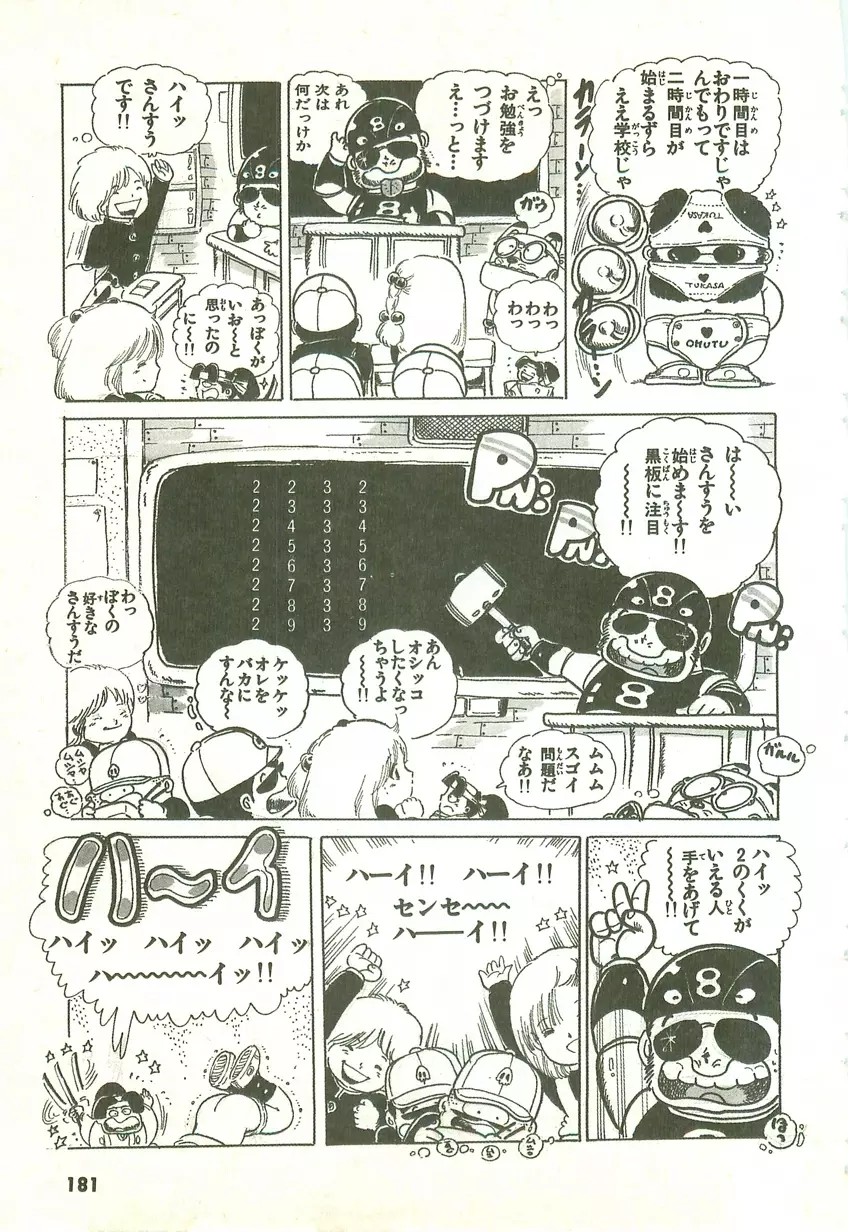 一時間目は
おわりですじゃ
んでもって
二時間目が
始まるずら
ええ学校じゃ
カラーン…
TUKASA
TUKASA
OHUTU
えっ
お勉強を
つづけます
え…っと…
あれ
次は
何だっけか
8
8
ガウ
わっ
わっ
わっ
ハイッ
さんすう
です!!
8
あっぼくが
いお〜と
思ったの
に〜!!
は〜〜い
さんすうを
始めま〜す!!
黒板に注目
〜〜〜〜!!
PN:
PN:
PN:
2 2 3 2
2 3 3 3
2 4 3 4
2 5 3 5
2 6 3 6
2 7 3 7
2 8 3 8
2 9 3 9
8
8
わっ
ぼくの
好きな
さんすうだ
ケッケッ
オレを
バカに
すんな〜
あん
オシッコ
したくなっ
ちゃうよ
〜〜!!
ムムム
スゴイ
問題だ
なあ!!
ガルル
ムシャ
ムシャ
ハイッ
2のくくが
いえる人
手をあげて
〜〜〜〜!!
8
ほっ
ハーイ!! ハーイ!!
センセ〜〜
ハ──イ!!
ハ〜イ
ハイッ ハイッ ハイッ
ハ〜〜〜〜〜イッ!!
181